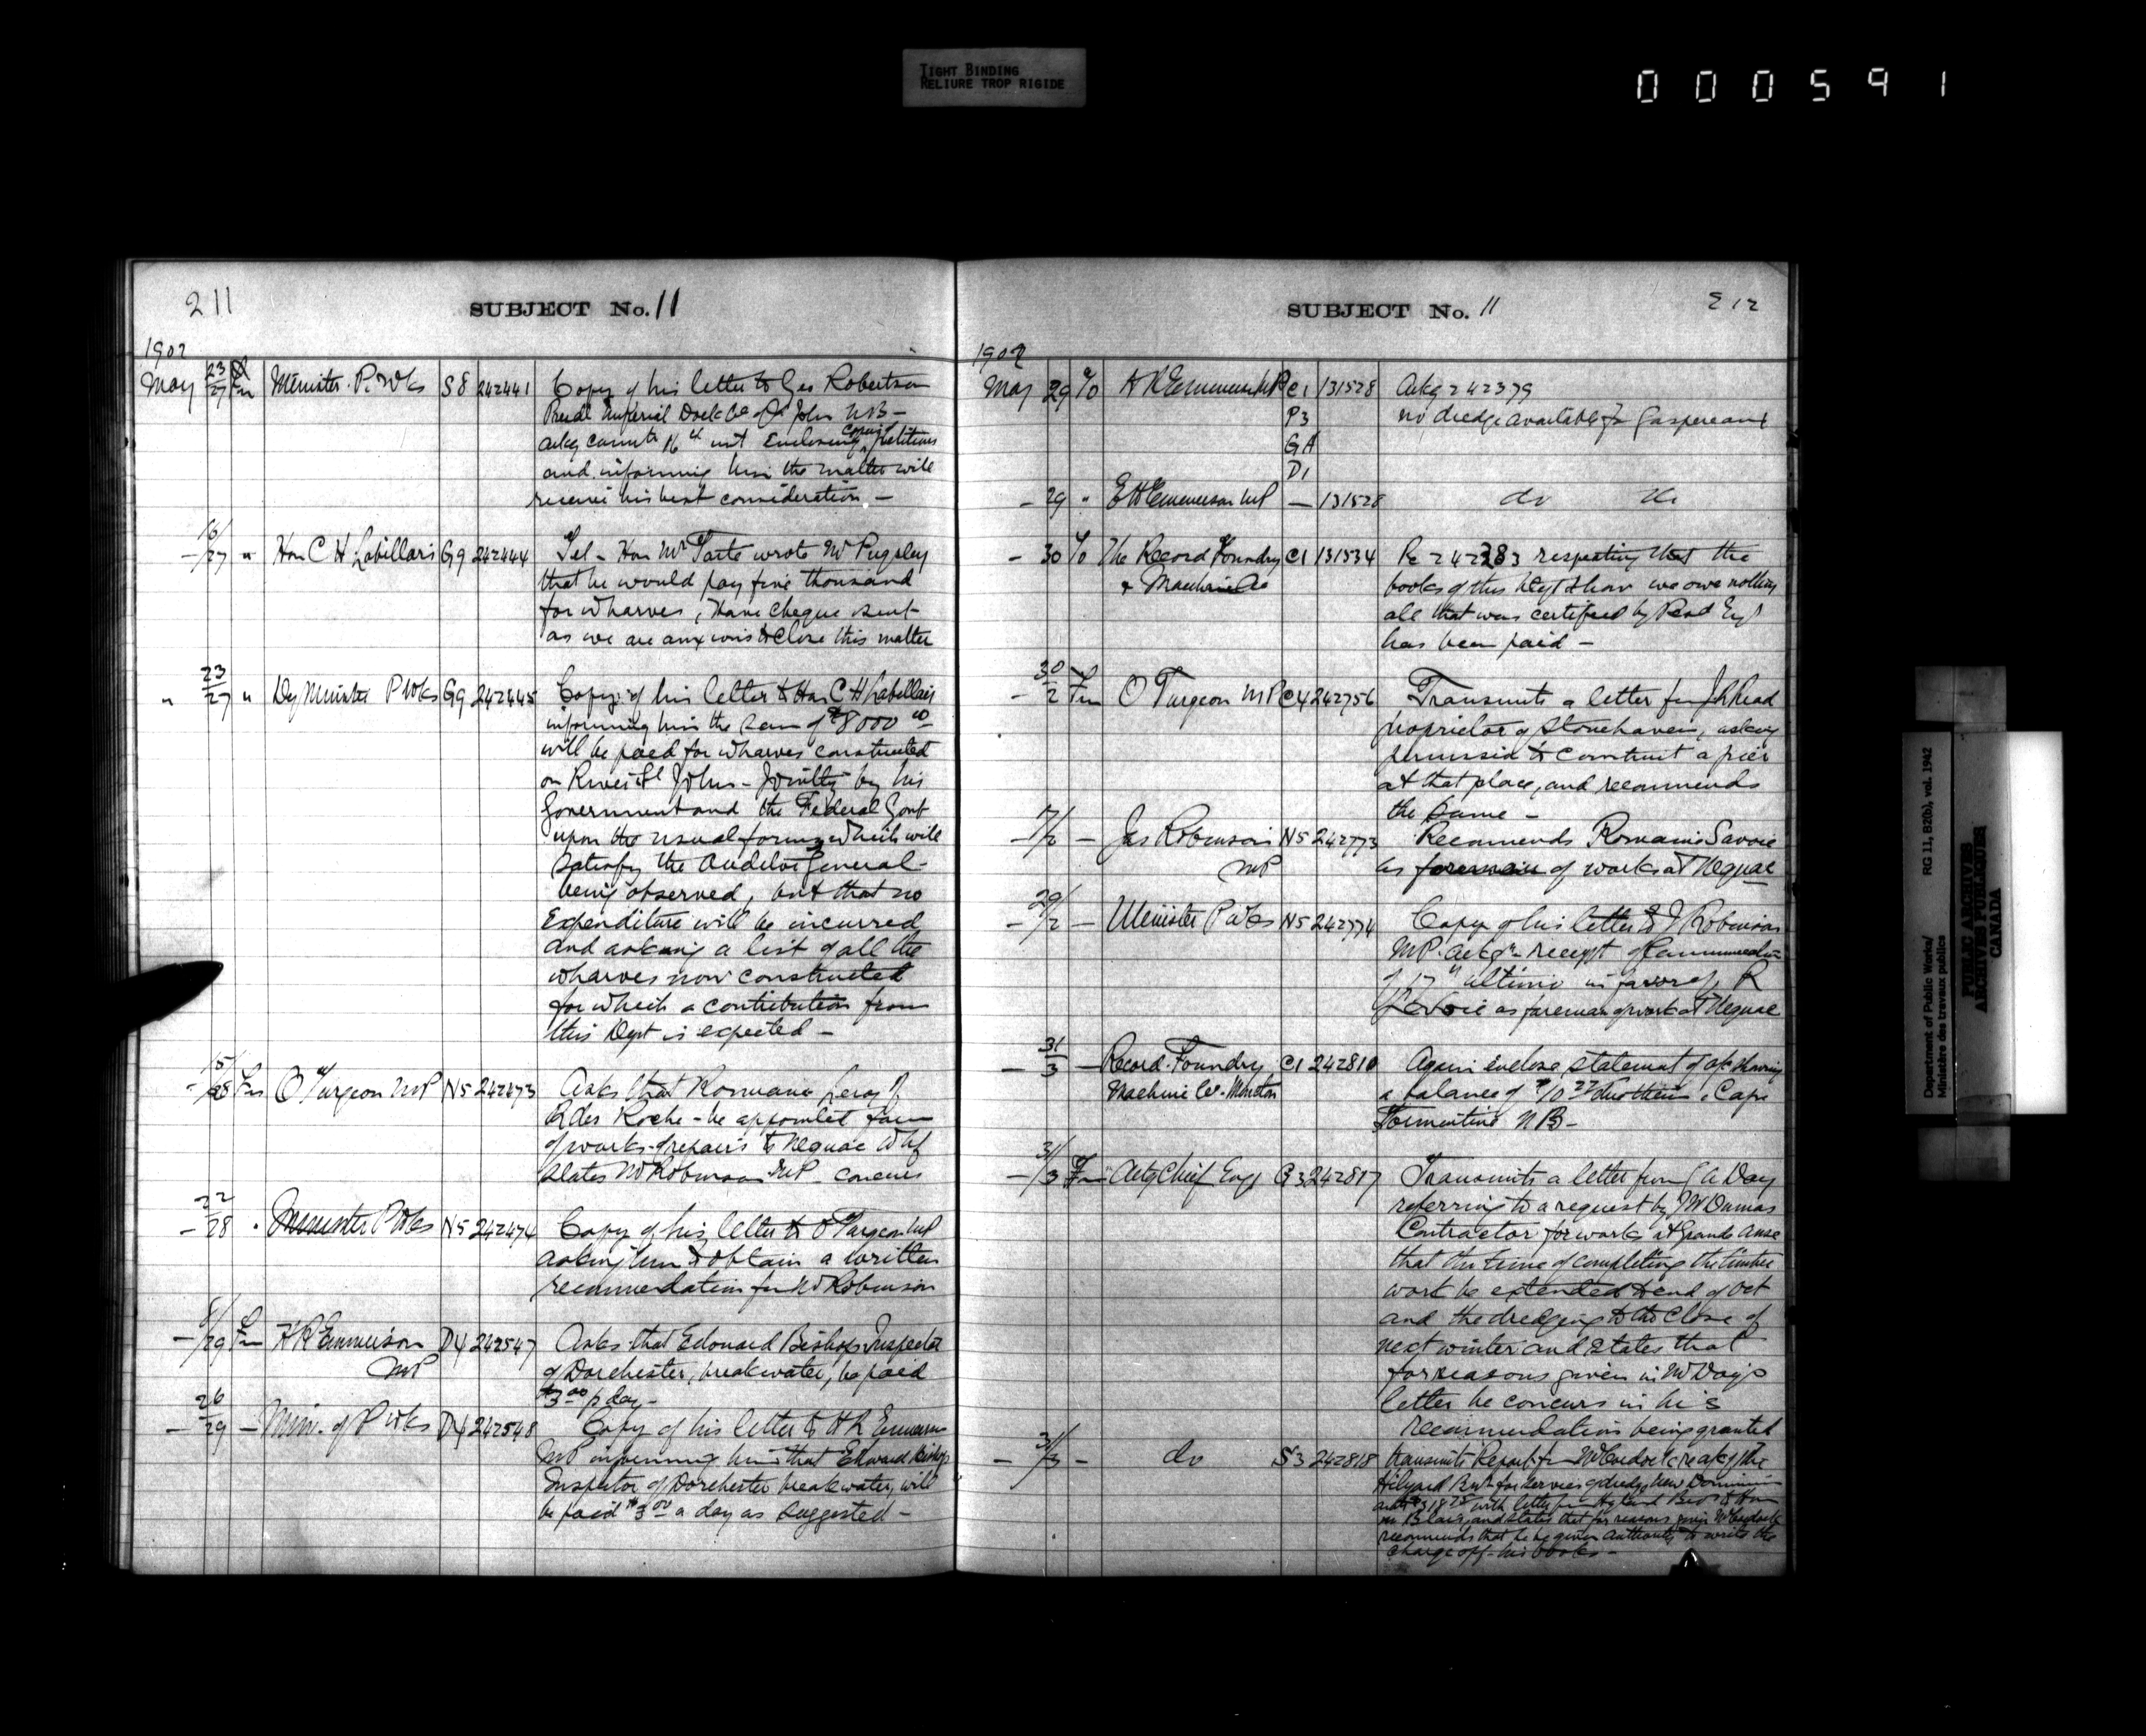 TIGHT BINDING
RELIURE TROP RIGIDE
000591
211
SUBJECT No. 11
1902
May 23/27 Fm Minister P. Wks S8 242441 Copy of his letter to Geo Robertson
Presdt Imperial Dock Co of St John NB –
ackg 16th inst Enclosing copies petitions
and informing him the matter will
receive his best consideration –
– 16/27 " Hon C H Labillois G9 242444 Tel – Hon Mr Tarte wrote Mr Pugsley
that he would pay five thousand
for wharves, have cheque sent
as we are anxious to close this matter
" 23/27 " Dy Minister P Wks G9 242445 Copy of his letter to Hon C H Labillois
informing him the sum of $8000 00
will be paid for wharves constructed
on River St John – Jointly by his
Government and the Federal Govt
upon the usual forms which will
satisfy the Auditor General –
being observed, but that no
Expenditure will be incurred
and asking a list of all the
wharves now constructed
for which a contribution from
this Dept is expected –
- 15/28 Fm O Turgeon MP N5 242473 Asks that
Roche – be appointed
of works – repairs to Neguac Whf
States Mr Robinson MP concurs
– 22/28 Minister P Wks N5 242474 Copy of his letter to O Turgeon MP
asking him to obtain a written
recommendation fm Mr Robinson
– 8/29 Fm H R Emmerson D4 242547 Asks that Edouard Bishop Inspector
MP of Dorchester, breakwater, be paid
$3 00 p day –
– 26/29 – Min. of P Wks D4 242548 Copy of his letter to H R Emmerson
MP informing him that Edward Bishop
Inspector of Dorchester breakwater, will
be paid $3 00 a day as suggested –
SUBJECT No. 11
212
1902
May 29 To H R Emmerson MP C1 131528 Ackg 242379
P3 no dredge available for Gaspereaux
GA
D1
– 29 " E H Emmerson MP — 131528 do do
– 30 To The Record Foundry C1 131534 Re 242383 respecting that the
& Machine Co books of this Dept show we owe nothing
all that was certified by Resd Eng
has been paid –
– 30/2 Fm O Turgeon MP C4 242756 Transmits a letter fm
proprietor of Stonehaven, asking
permission to construct a pier
at that place, and recommends
the same –
– 17/2 – Jas Robinson N5 242773 Recommends Romain Savoie
MP as foreman of works at Neguac
– 29/2 – Minister P Wks N5 242774 Copy of his letter to J Robinson
MP. ackg receipt of
of 17th ultimo in favor of R
Savoie as foreman of work at Neguac
– 31/3 – Record Foundry C1 242810 Again enclose statement of a/c showing
Machine Co. Moncton a balance of due them, Cape
Tormentine NB –
– 31/3 Fm Actg Chief Eng G3 242817 Transmits a letter from Day
referring to a request by
Contractor for works at Grande Anse
that the time of completing the timber
work be extended to end of Oct
and the dredging to the close of
next winter and states that
for reasons given in Mr Day's
letter he concurs in his
recommendation being granted
– 31/3 – do S3 242818 Transmits Report fm re a/c of the
Hilyard Bros for services of dredge New Dominion
with letter fm Hilyard Bros to Hon
Mr Blair, and states that for reasons given
recommends that he be given authority to write the
charge off his books –
Department of Public Works/
Ministère des travaux publics
RG 11, B2(b), vol. 1942
PUBLIC ARCHIVES
ARCHIVES PUBLIQUES
CANADA